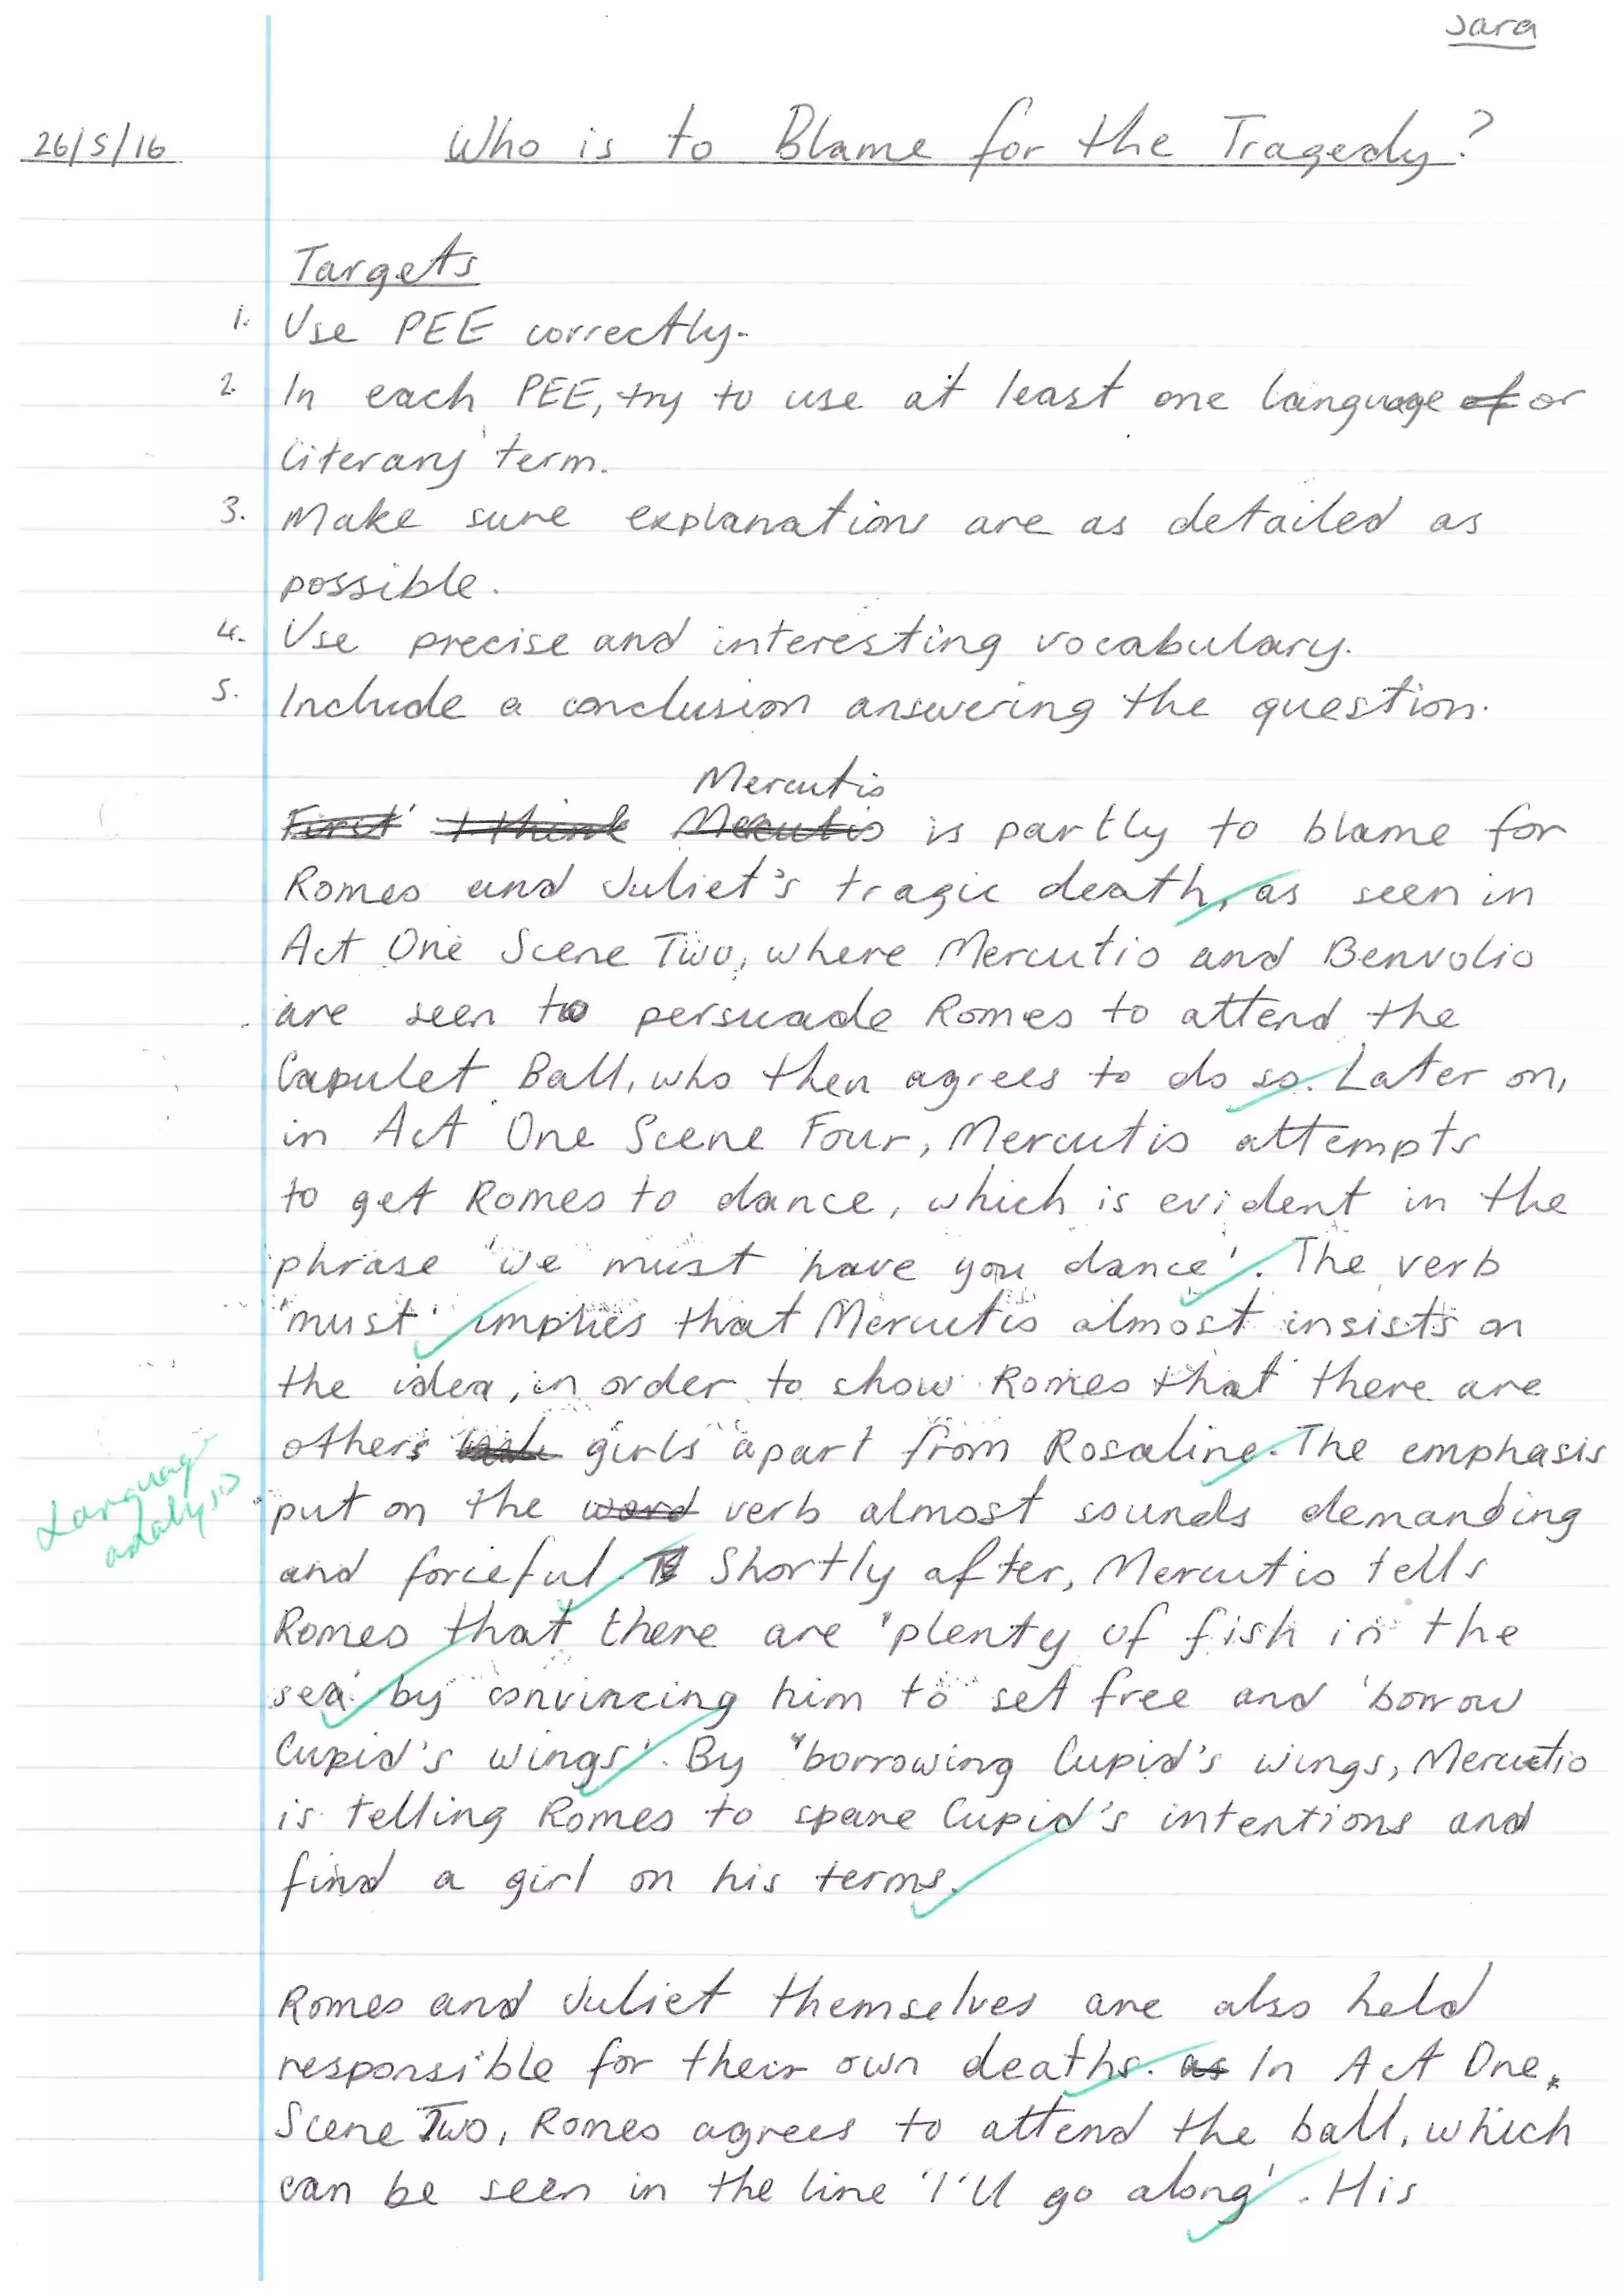 Sara
26/5/16 Who is to Blame for the Tragedy?
Targets
1. Use PEE correctly.
2. In each PEE, try to use at least one language of or
literary term.
3. Make sure explanations are as detailed as
possible.
4. Use precise and interesting vocabulary.
5. Include a conclusion answering the question.
Mercutio
First I think Mecutio is partly to blame for
Romeo and Juliet's tragic death, as seen in
Act One Scene Two, where Mercutio and Benvolio
are seen to persuade Romeo to attend the
Capulet Ball, who then agrees to do so. Later on,
in Act One Scene Four, Mercutio attempts
to get Romeo to dance, which is evident in the
phrase 'we must have you dance'. The verb
'must' implies that Mercutio almost insists on
the idea, in order to show Romeo that there are
others girls apart from Rosaline. The emphasis
Language
analysis
put on the word verb almost sounds demanding
and forceful. Shortly after, Mercutio tells
Romeo that there are 'plenty of fish in the
sea' by convincing him to set free and 'borrow
Cupid's wings'. By "borrowing Cupid's wings, Mercutio
is telling Romeo to spare Cupid's intentions and
find a girl on his terms.
Romeo and Juliet themselves are also held
responsible for their own deaths. as In Act One,
Scene Two, Romeo agrees to attend the ball, which
can be seen in the line 'I'll go along'. His